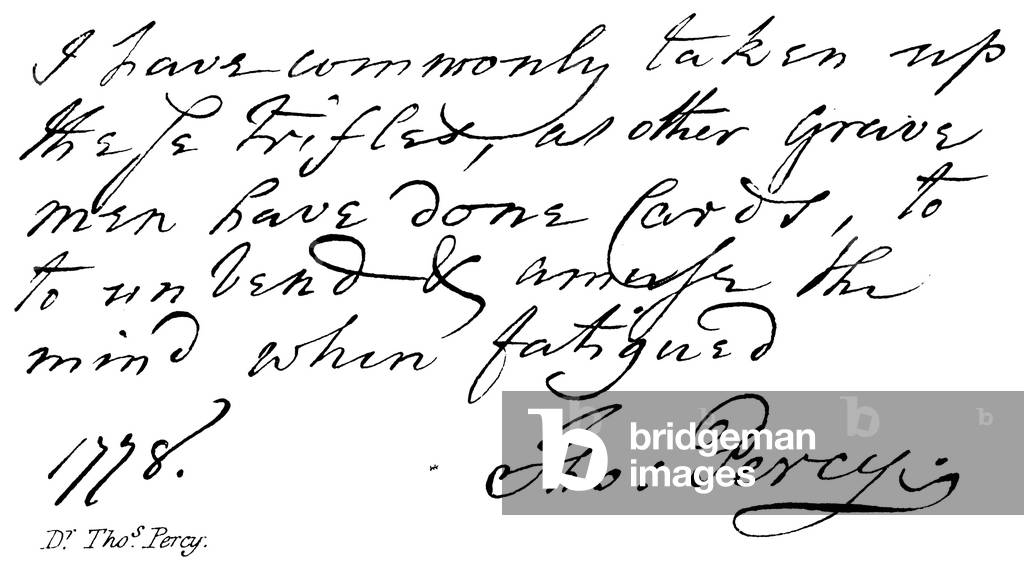 I have commonly taken up
these trifles, as other grave
men have done Cards, to
to unbend & amuse the
mind when fatigued
1778.
Tho: Percy.
Dr. Thos. Percy.
bridgeman
images